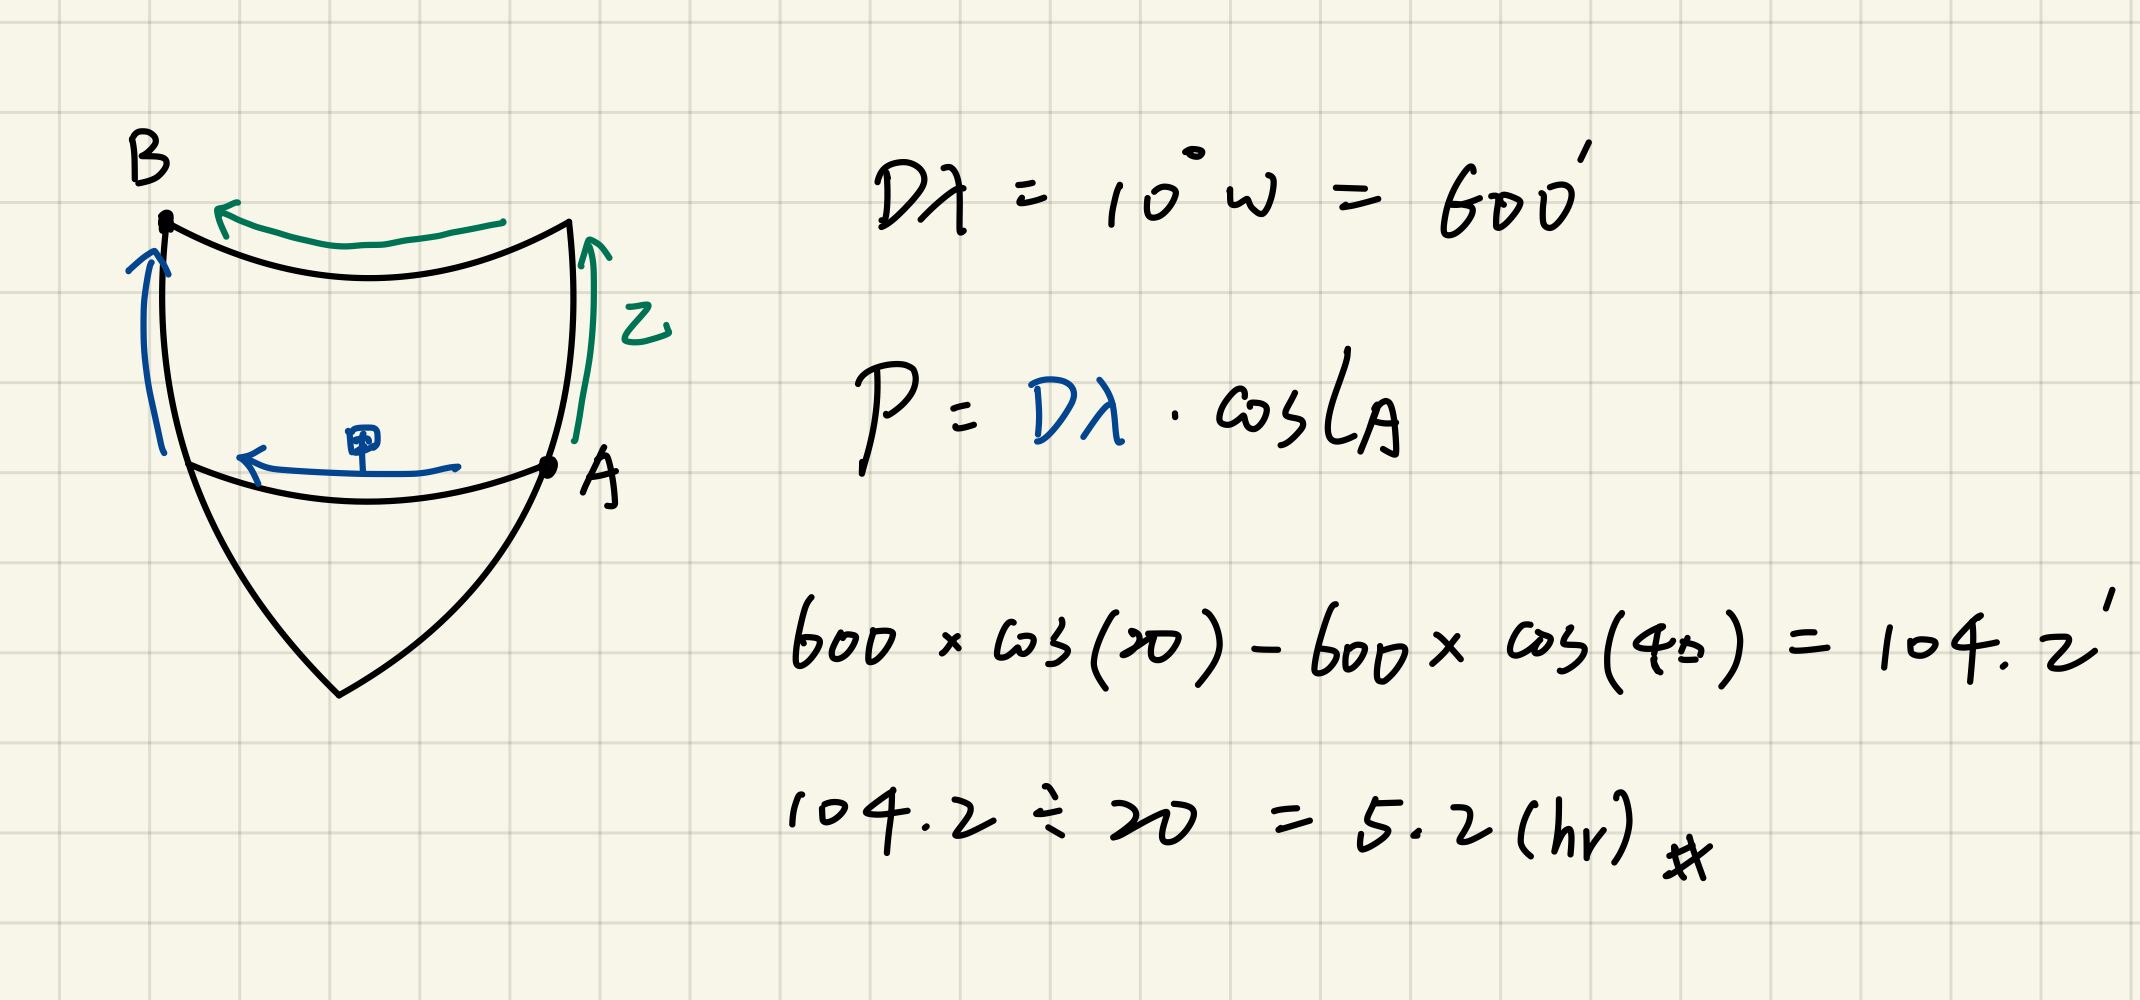 B
Dλ = 10° W = 600′
2
P = Dλ · cos L_A
A
600 × cos(20) − 600 × cos(40) = 104.2′
104.2 ÷ 20 = 5.2 (hr) #